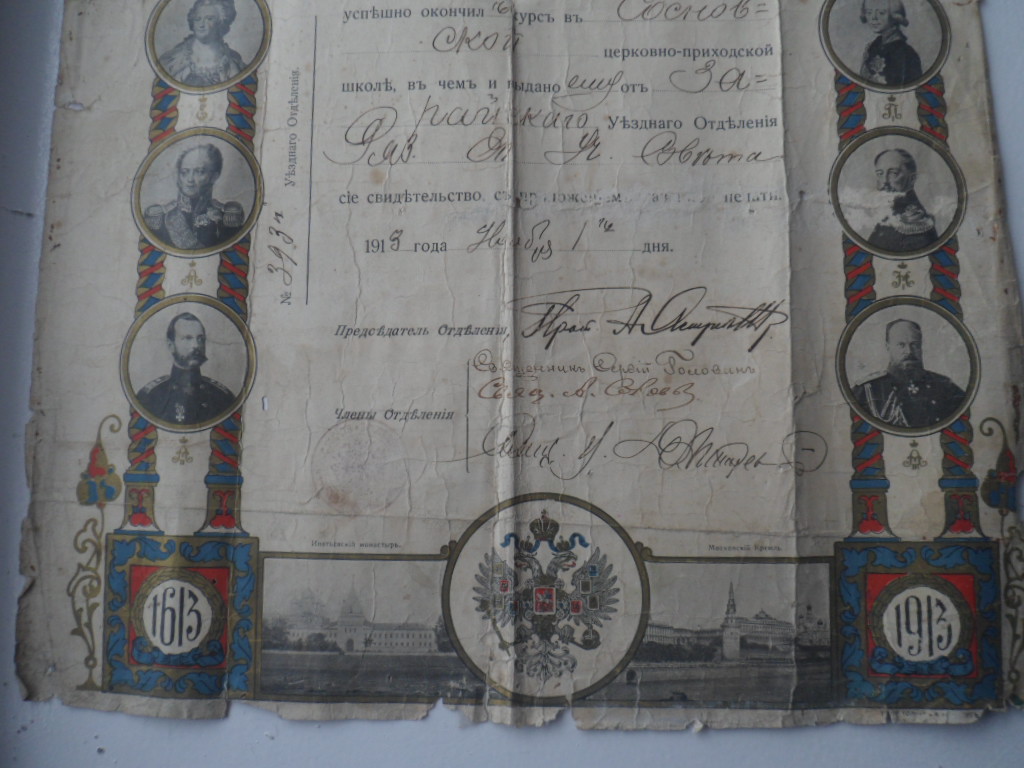 успѣшно окончил курсъ въ Соснов=
ской церковно-приходской
школѣ, въ чемъ и выдано ему отъ За=
райскаго Уѣзднаго Отдѣленія
Ряз. Еп. Уч. Совѣта
сіе свидѣтельство, съ приложеніемъ печати.
1913 года Ноября 1 дня.
№ 393
Уѣзднаго Отдѣленія.
Предсѣдатель Отдѣленія, Прот. А.
Священникъ Сергій Головинъ
Свящ. А.
Члены Отдѣленія
Свящ.
Ипатьевскій монастырь.
Московскій Кремль.
1613
1913